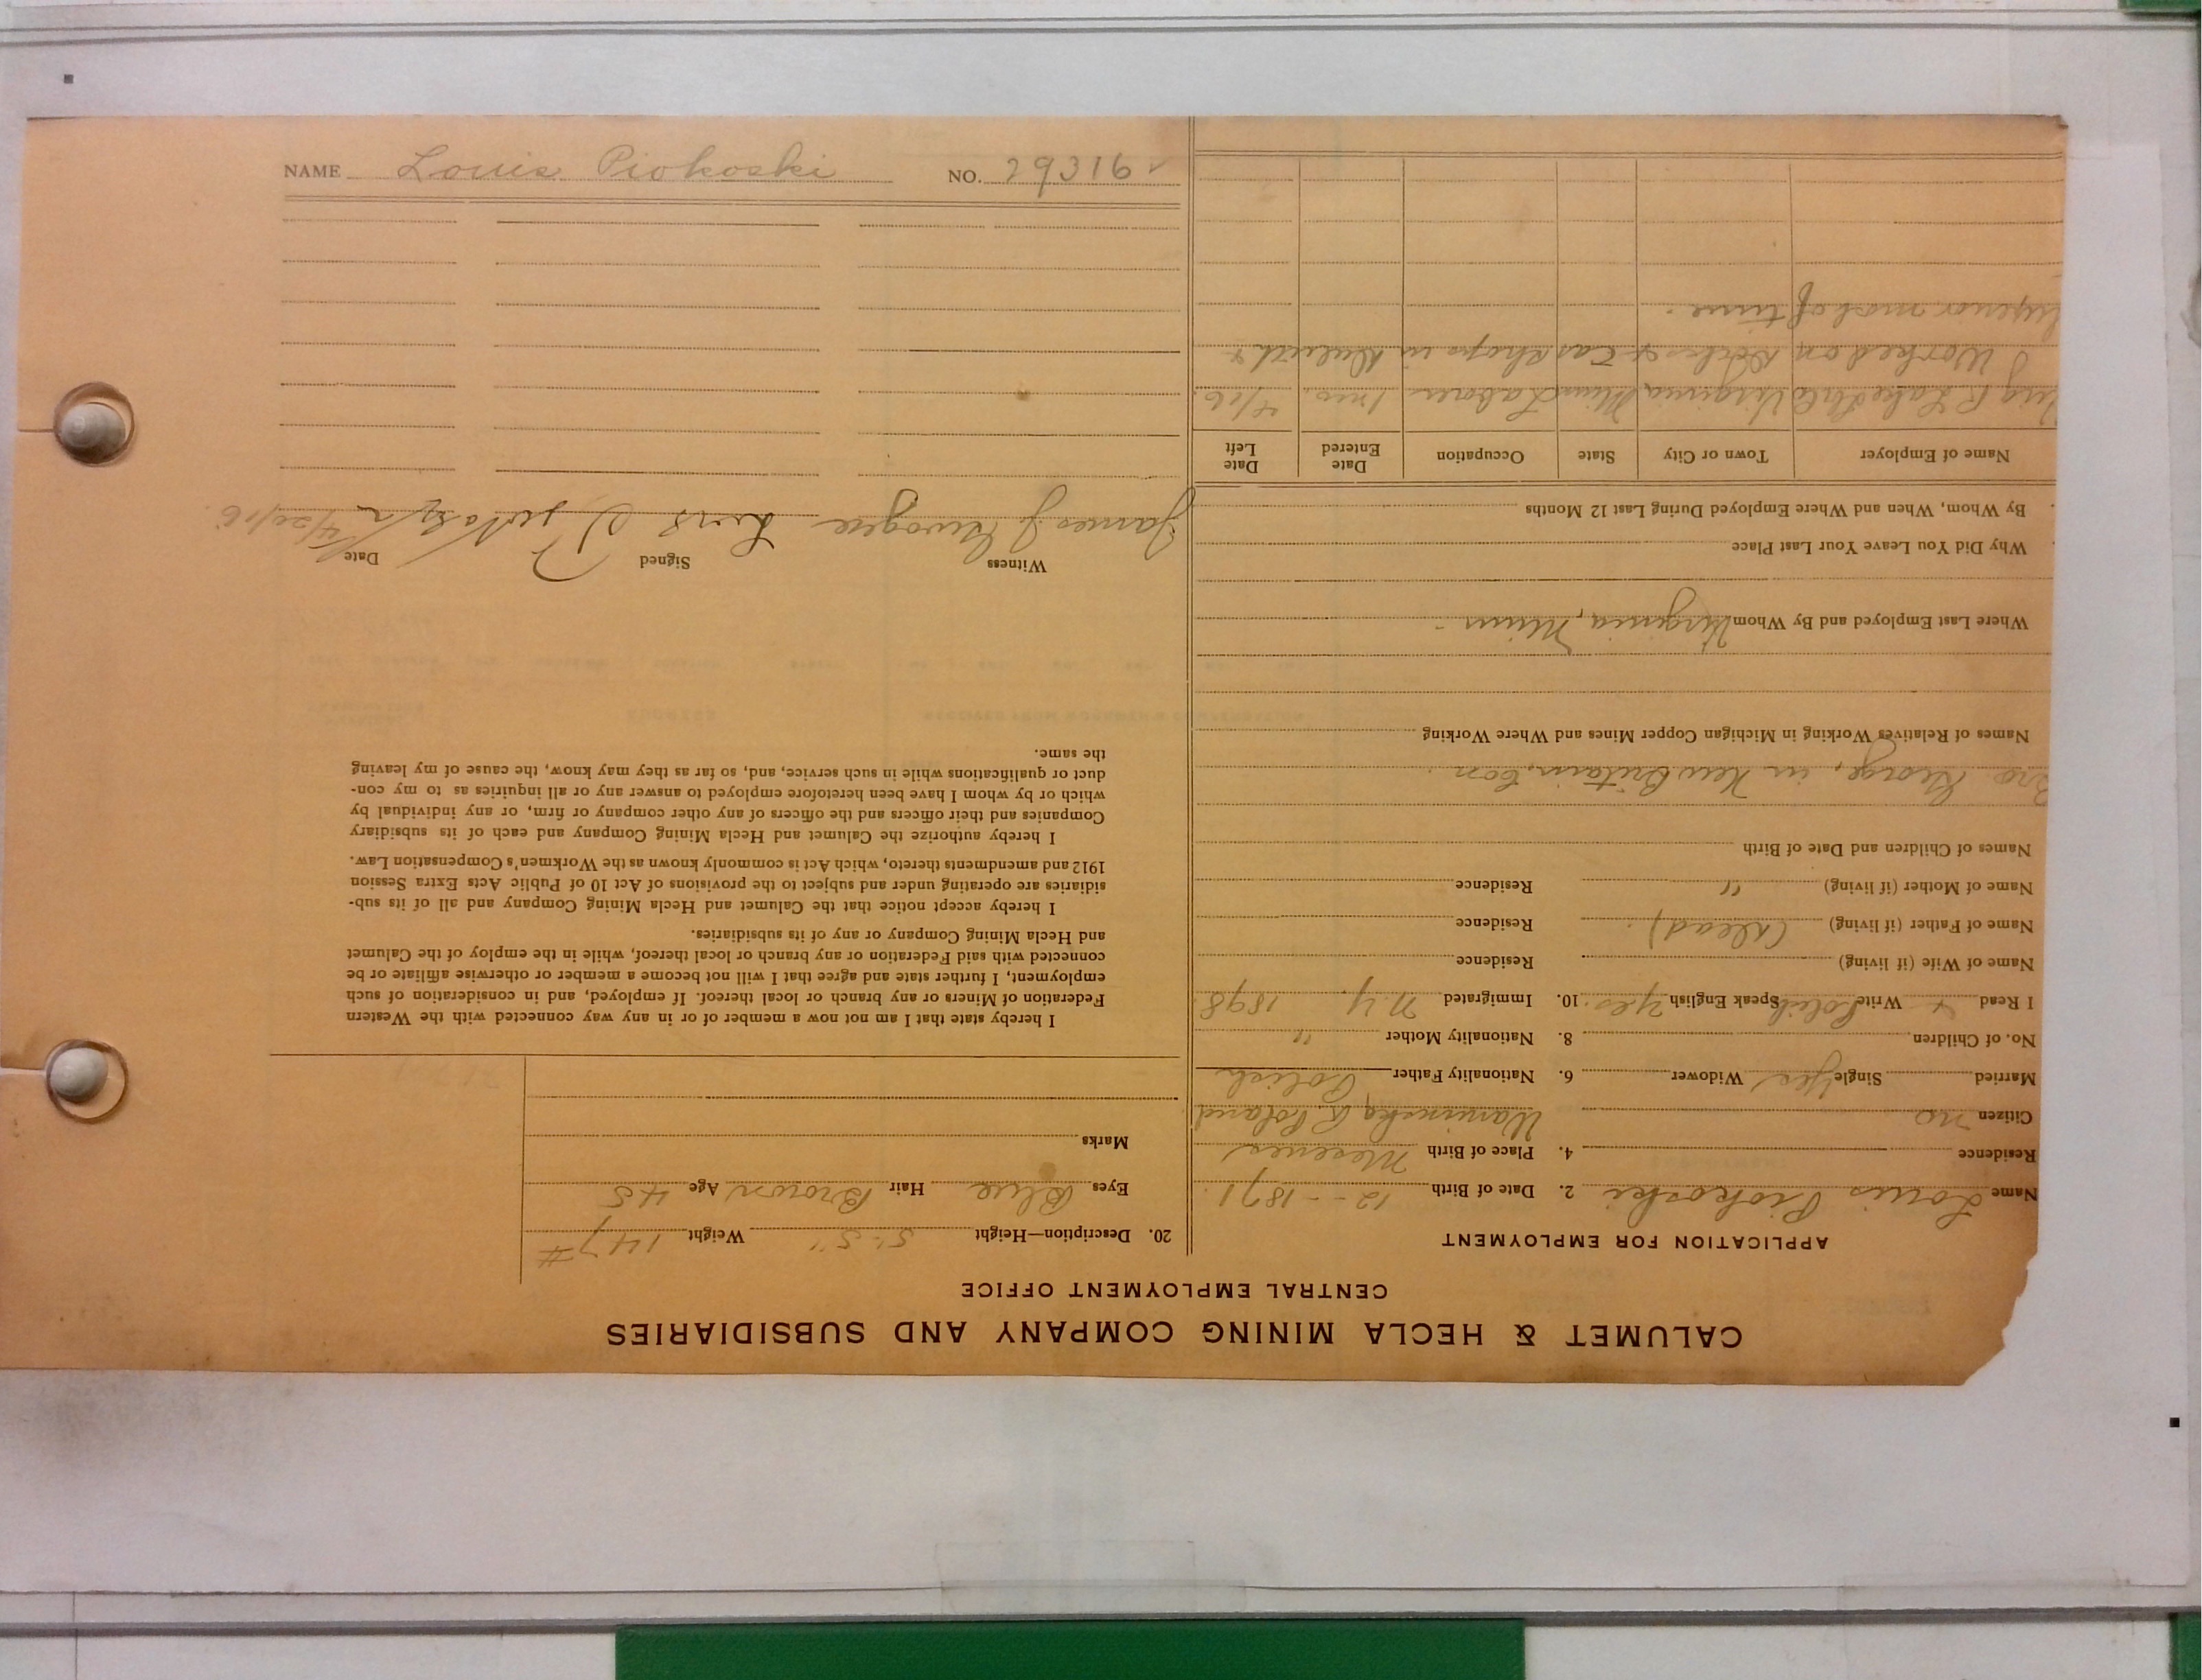 CALUMET & HECLA MINING COMPANY AND SUBSIDIARIES
CENTRAL EMPLOYMENT OFFICE
APPLICATION FOR EMPLOYMENT
Name Louis Piokoski 2. Date of Birth 12 - 1871.
Residence 4. Place of Birth
Citizen no Poland
Married Single Yes Widower 6. Nationality Father Polish
No. of Children 8. Nationality Mother "
I Read Write Polish Speak English Yes. 10. Immigrated N.Y. 1898.
Name of Wife (if living) Residence
Name of Father (if living) (Dead). Residence
Name of Mother (if living) " Residence
Names of Children and Date of Birth
Bro George, in New Britain, Con.
Names of Relatives Working in Michigan Copper Mines and Where Working
Where Last Employed and By Whom Virginia, Minn -
Why Did You Leave Your Last Place
By Whom, When and Where Employed During Last 12 Months
Name of Employer Town or City State Occupation Date Entered Date Left
Virginia Minn Laborer 1 mo. 4/16.
Worked on & Car shops in Duluth &
Superior most of time.
20. Description—Height 5'-5" Weight 147#
Eyes Blue Hair Brown Age 45
Marks
I hereby state that I am not now a member of or in any way connected with the Western
Federation of Miners or any branch or local thereof. If employed, and in consideration of such
employment, I further state and agree that I will not become a member or otherwise affiliate or be
connected with said Federation or any branch or local thereof, while in the employ of the Calumet
and Hecla Mining Company or any of its subsidiaries.
I hereby accept notice that the Calumet and Hecla Mining Company and all of its sub-
sidiaries are operating under and subject to the provisions of Act 10 of Public Acts Extra Session
1912 and amendments thereto, which Act is commonly known as the Workmen's Compensation Law.
I hereby authorize the Calumet and Hecla Mining Company and each of its subsidiary
Companies and their officers and the officers of any other company or firm, or any individual by
which or by whom I have been heretofore employed to answer any or all inquiries as to my con-
duct or qualifications while in such service, and, so far as they may know, the cause of my leaving
the same.
Witness Signed Date
James J. 4/26/16.
NAME Louis Piokoski NO. 29316